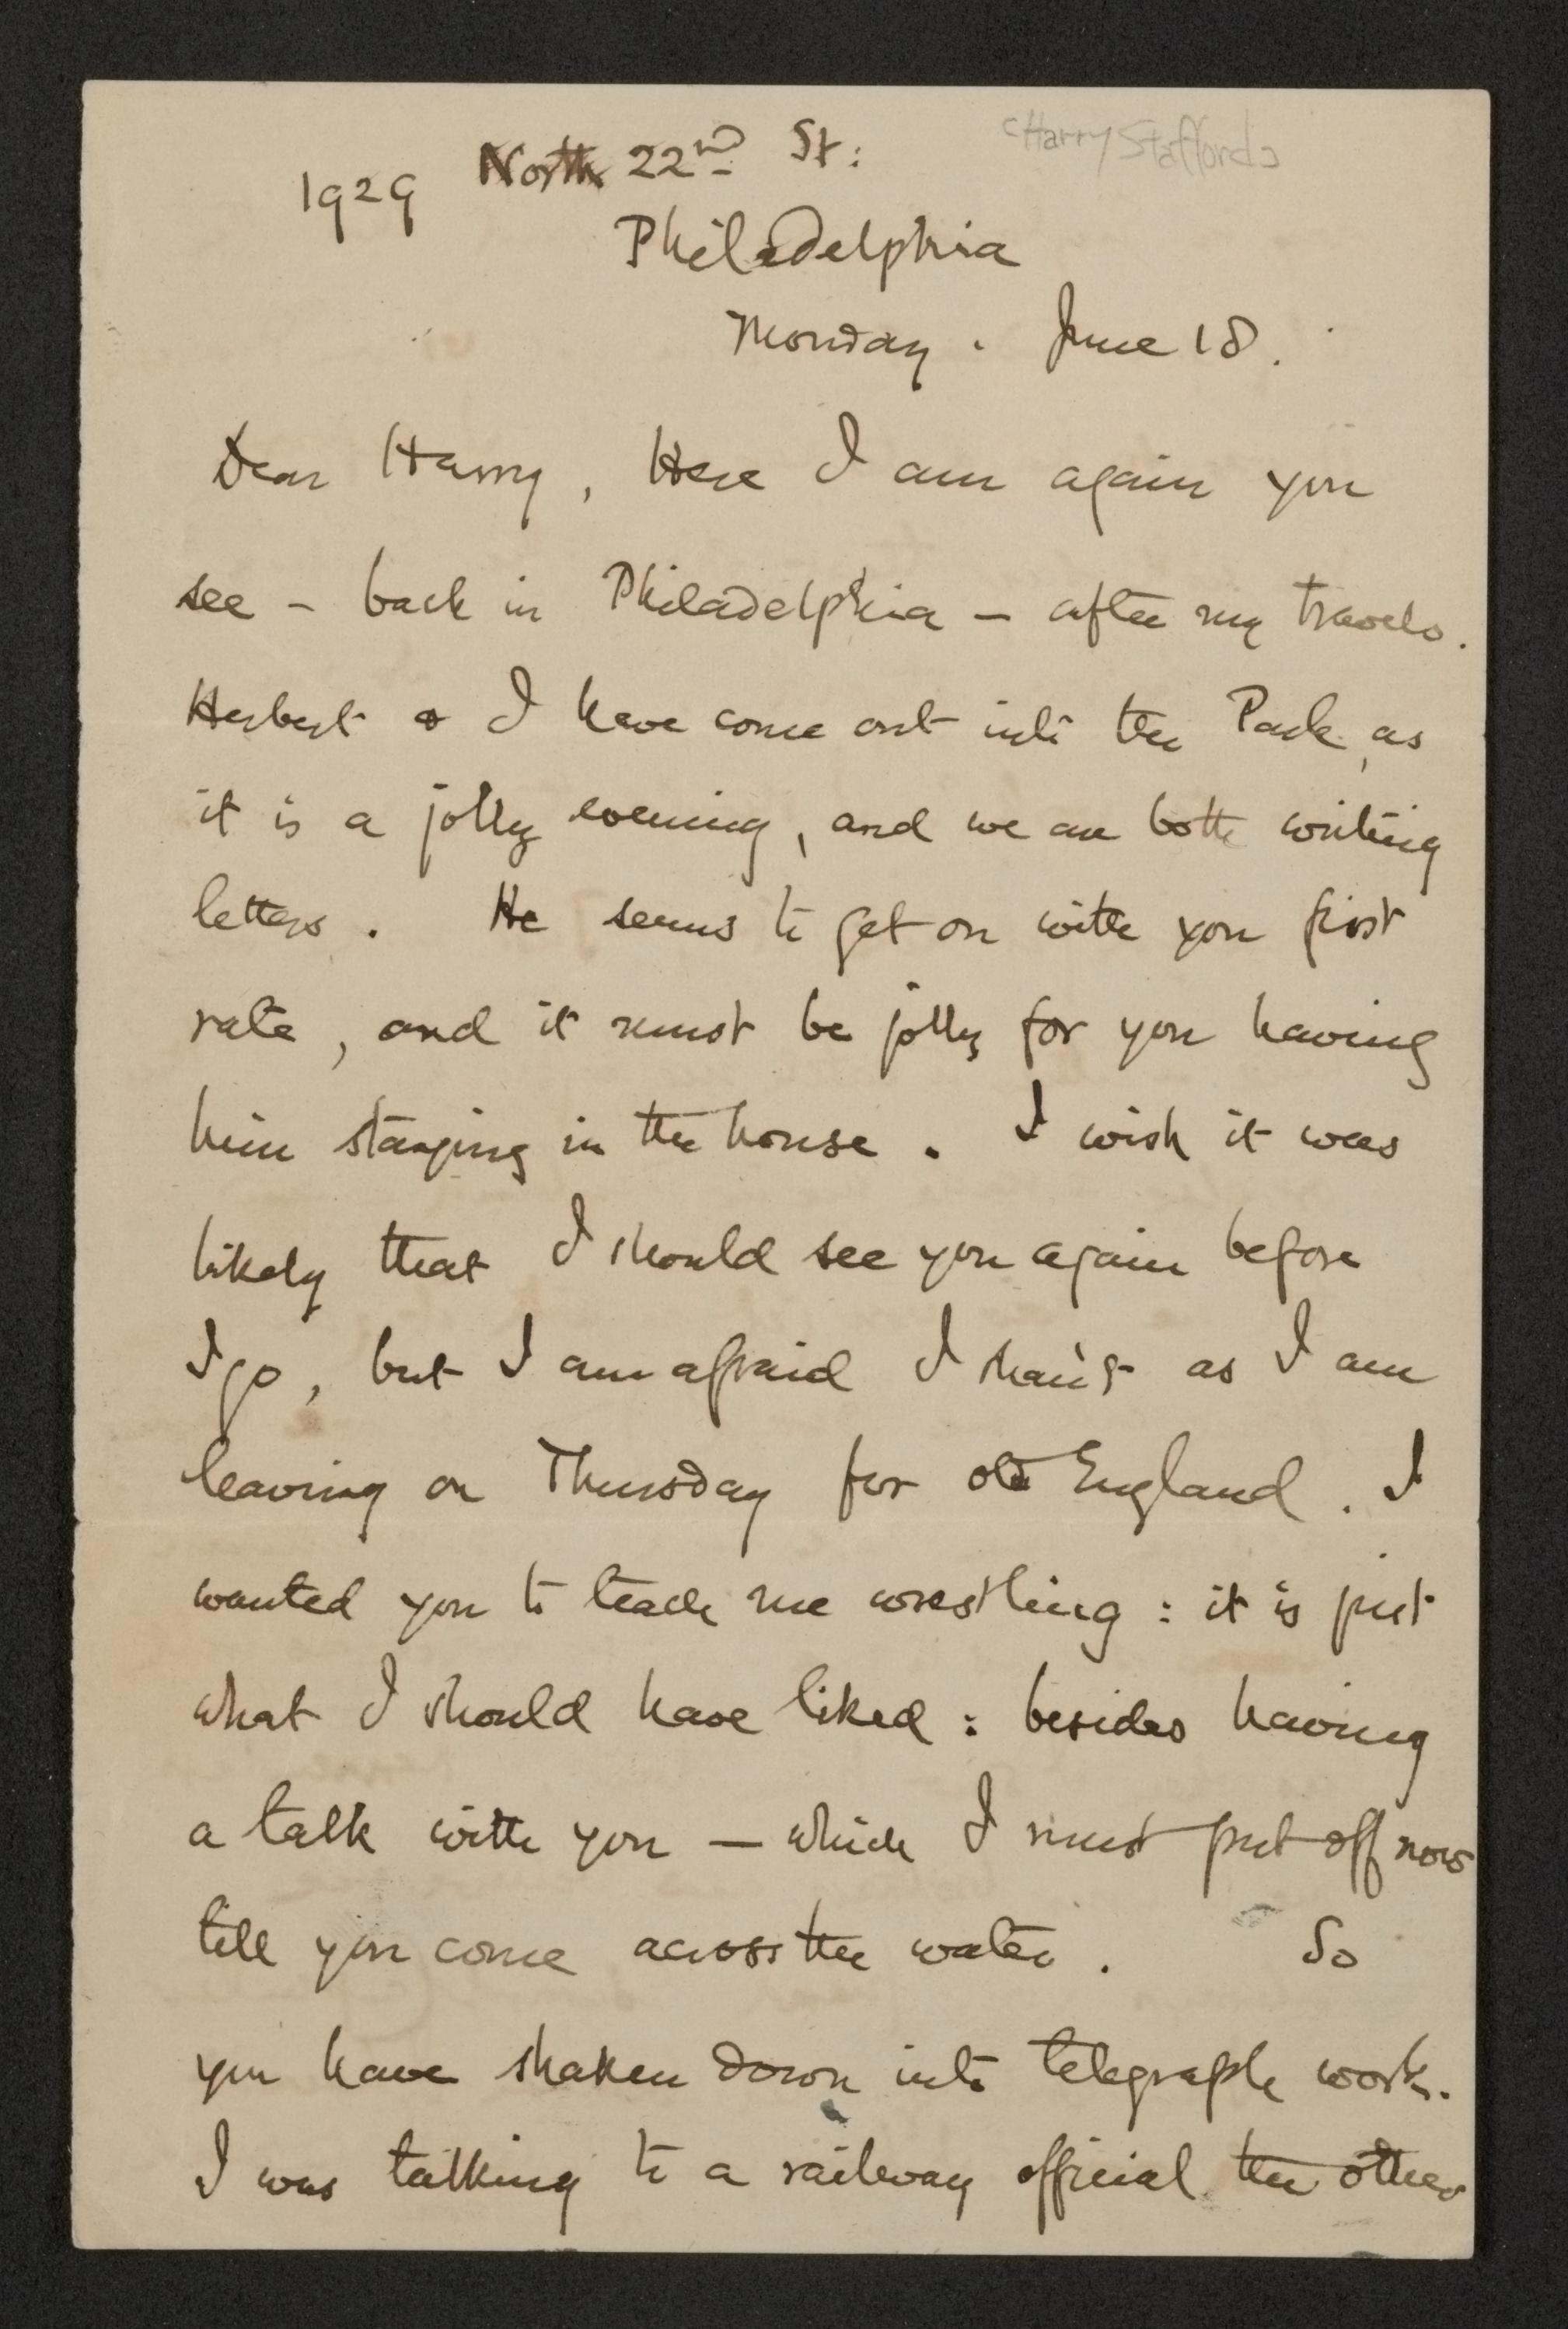 1929 North 22nd St:
[Harry Stafford]
Philadelphia
Monday. June 18.
Dear Harry, Here I am again you
see – back in Philadelphia – after my travels.
Herbert & I have come out into the Park, as
it is a jolly evening, and we are both writing
letters. He seems to get on with you first
rate, and it must be jolly for you having
him staying in the house. I wish it was
likely that I should see you again before
I go, but I am afraid I shan't as I am
leaving on Thursday for old England. I
wanted you to teach me wrestling: it is just
what I should have liked: besides having
a talk with you — which I must put off now
till you come across the water. So
you have shaken down into telegraph work.
I was talking to a railway official the other